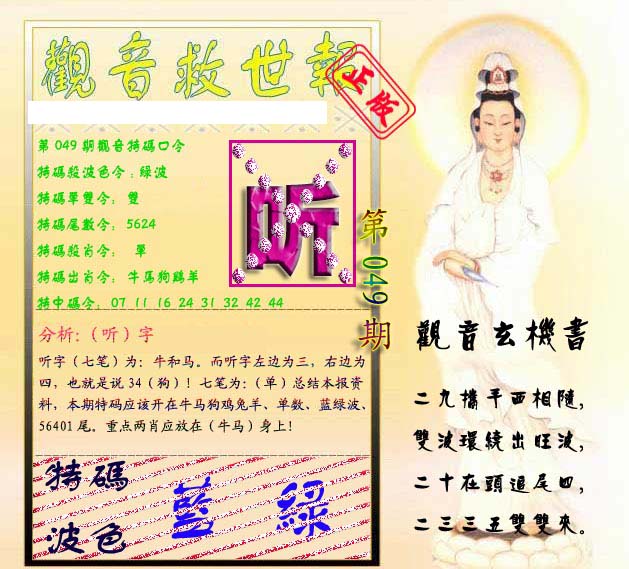 觀音救世報
正版
第049期觀音特碼口令
特碼殺波色令：綠波
特碼單雙令： 雙
特碼尾數令： 5624
特碼殺肖令： 單
特碼出肖令： 牛馬狗鷄羊
特中碼令： 07 11 16 24 31 32 42 44
听
第049期
分析:（听）字
听字（七笔）为：牛和马。而听字左边为三，右边为
四，也就是说34（狗）！七笔为:（单）总结本报资
料，本期特码应该开在牛马狗鸡兔羊、单数、蓝绿波、
56401尾。重点两肖应放在（牛马）身上!
特碼
波色
藍 綠
觀音玄機書
二九攜平西相隨,
雙波環繞出旺波,
二十在頭追尾四,
二三三五雙雙來。